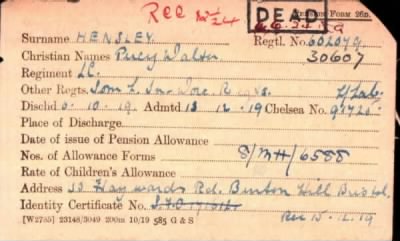 Rec DEAD Pension Form 26D.
Surname HENSLEY. Regtl. No. 602079.
Christian Names Percy Walter 30607
Regiment L.C.
Other Regts. Som. L. In. Dor. Regts.
Dischd 6.10.19 Admtd 13.12.19 Chelsea No.
Place of Discharge
Date of issue of Pension Allowance
Nos. of Allowance Forms 8/MH/6588
Rate of Children's Allowance
Address 33 Haywards Rd. Hill Bristol.
Identity Certificate No.
[W2785] 23148/3049 200m 10/19 585 G & S Rec 15.12.19